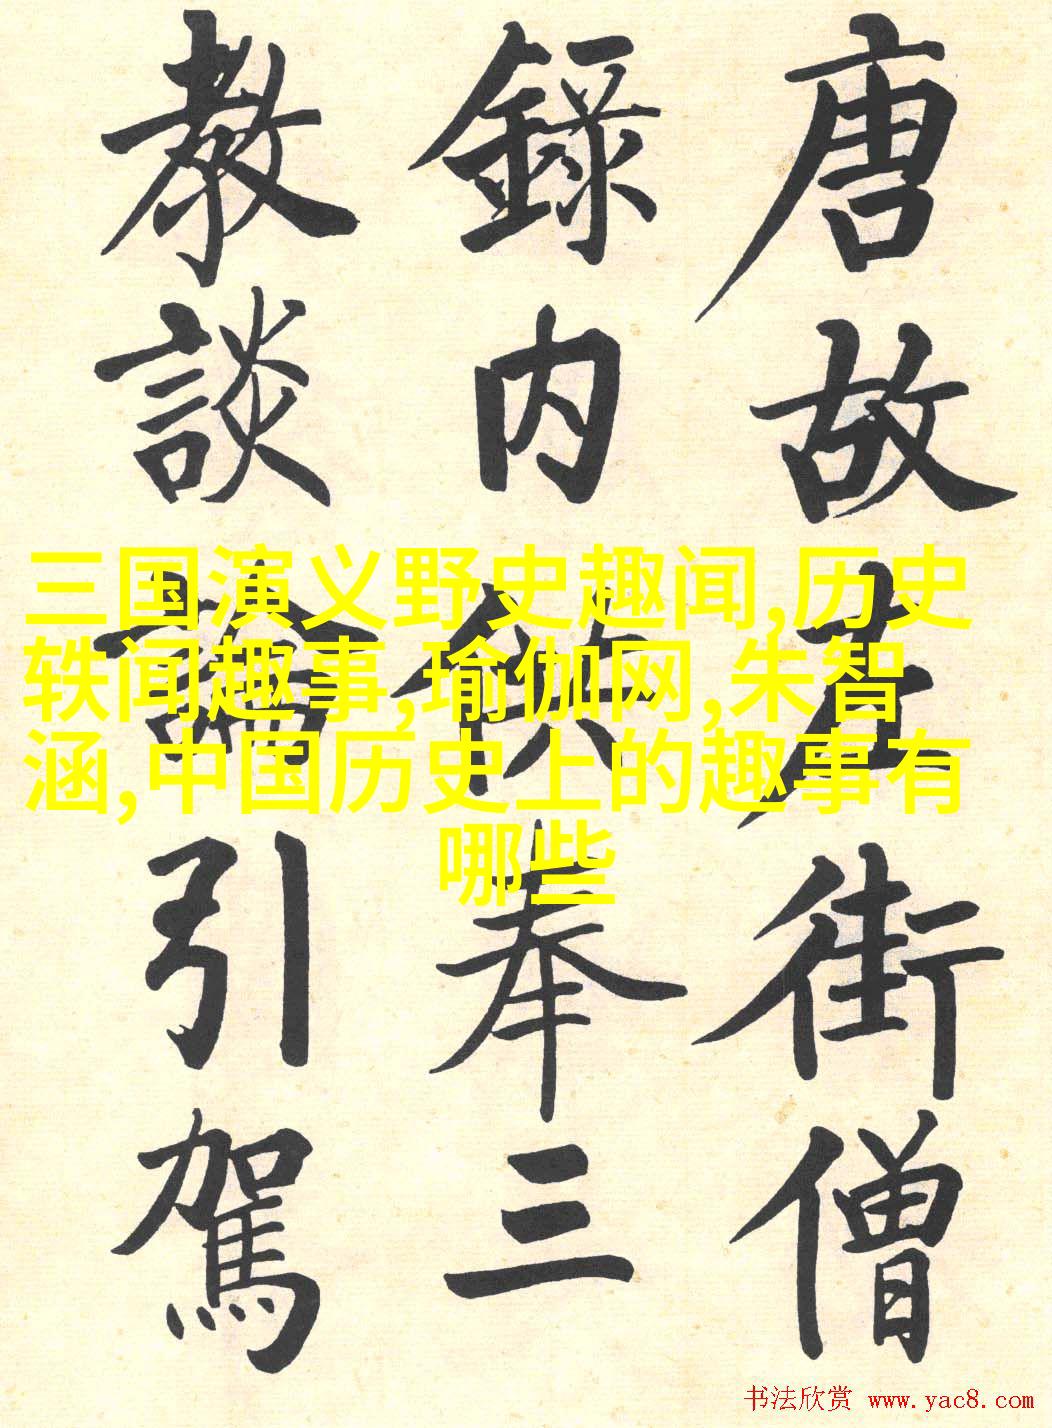 唐故左街僧
錄内供奉三
教談論引駕
三国演义野史趣闻,历史
轶闻趣事,瑜伽网,朱智
涵,中国历史上的趣事有
哪些
书法欣赏 www.yac8.com